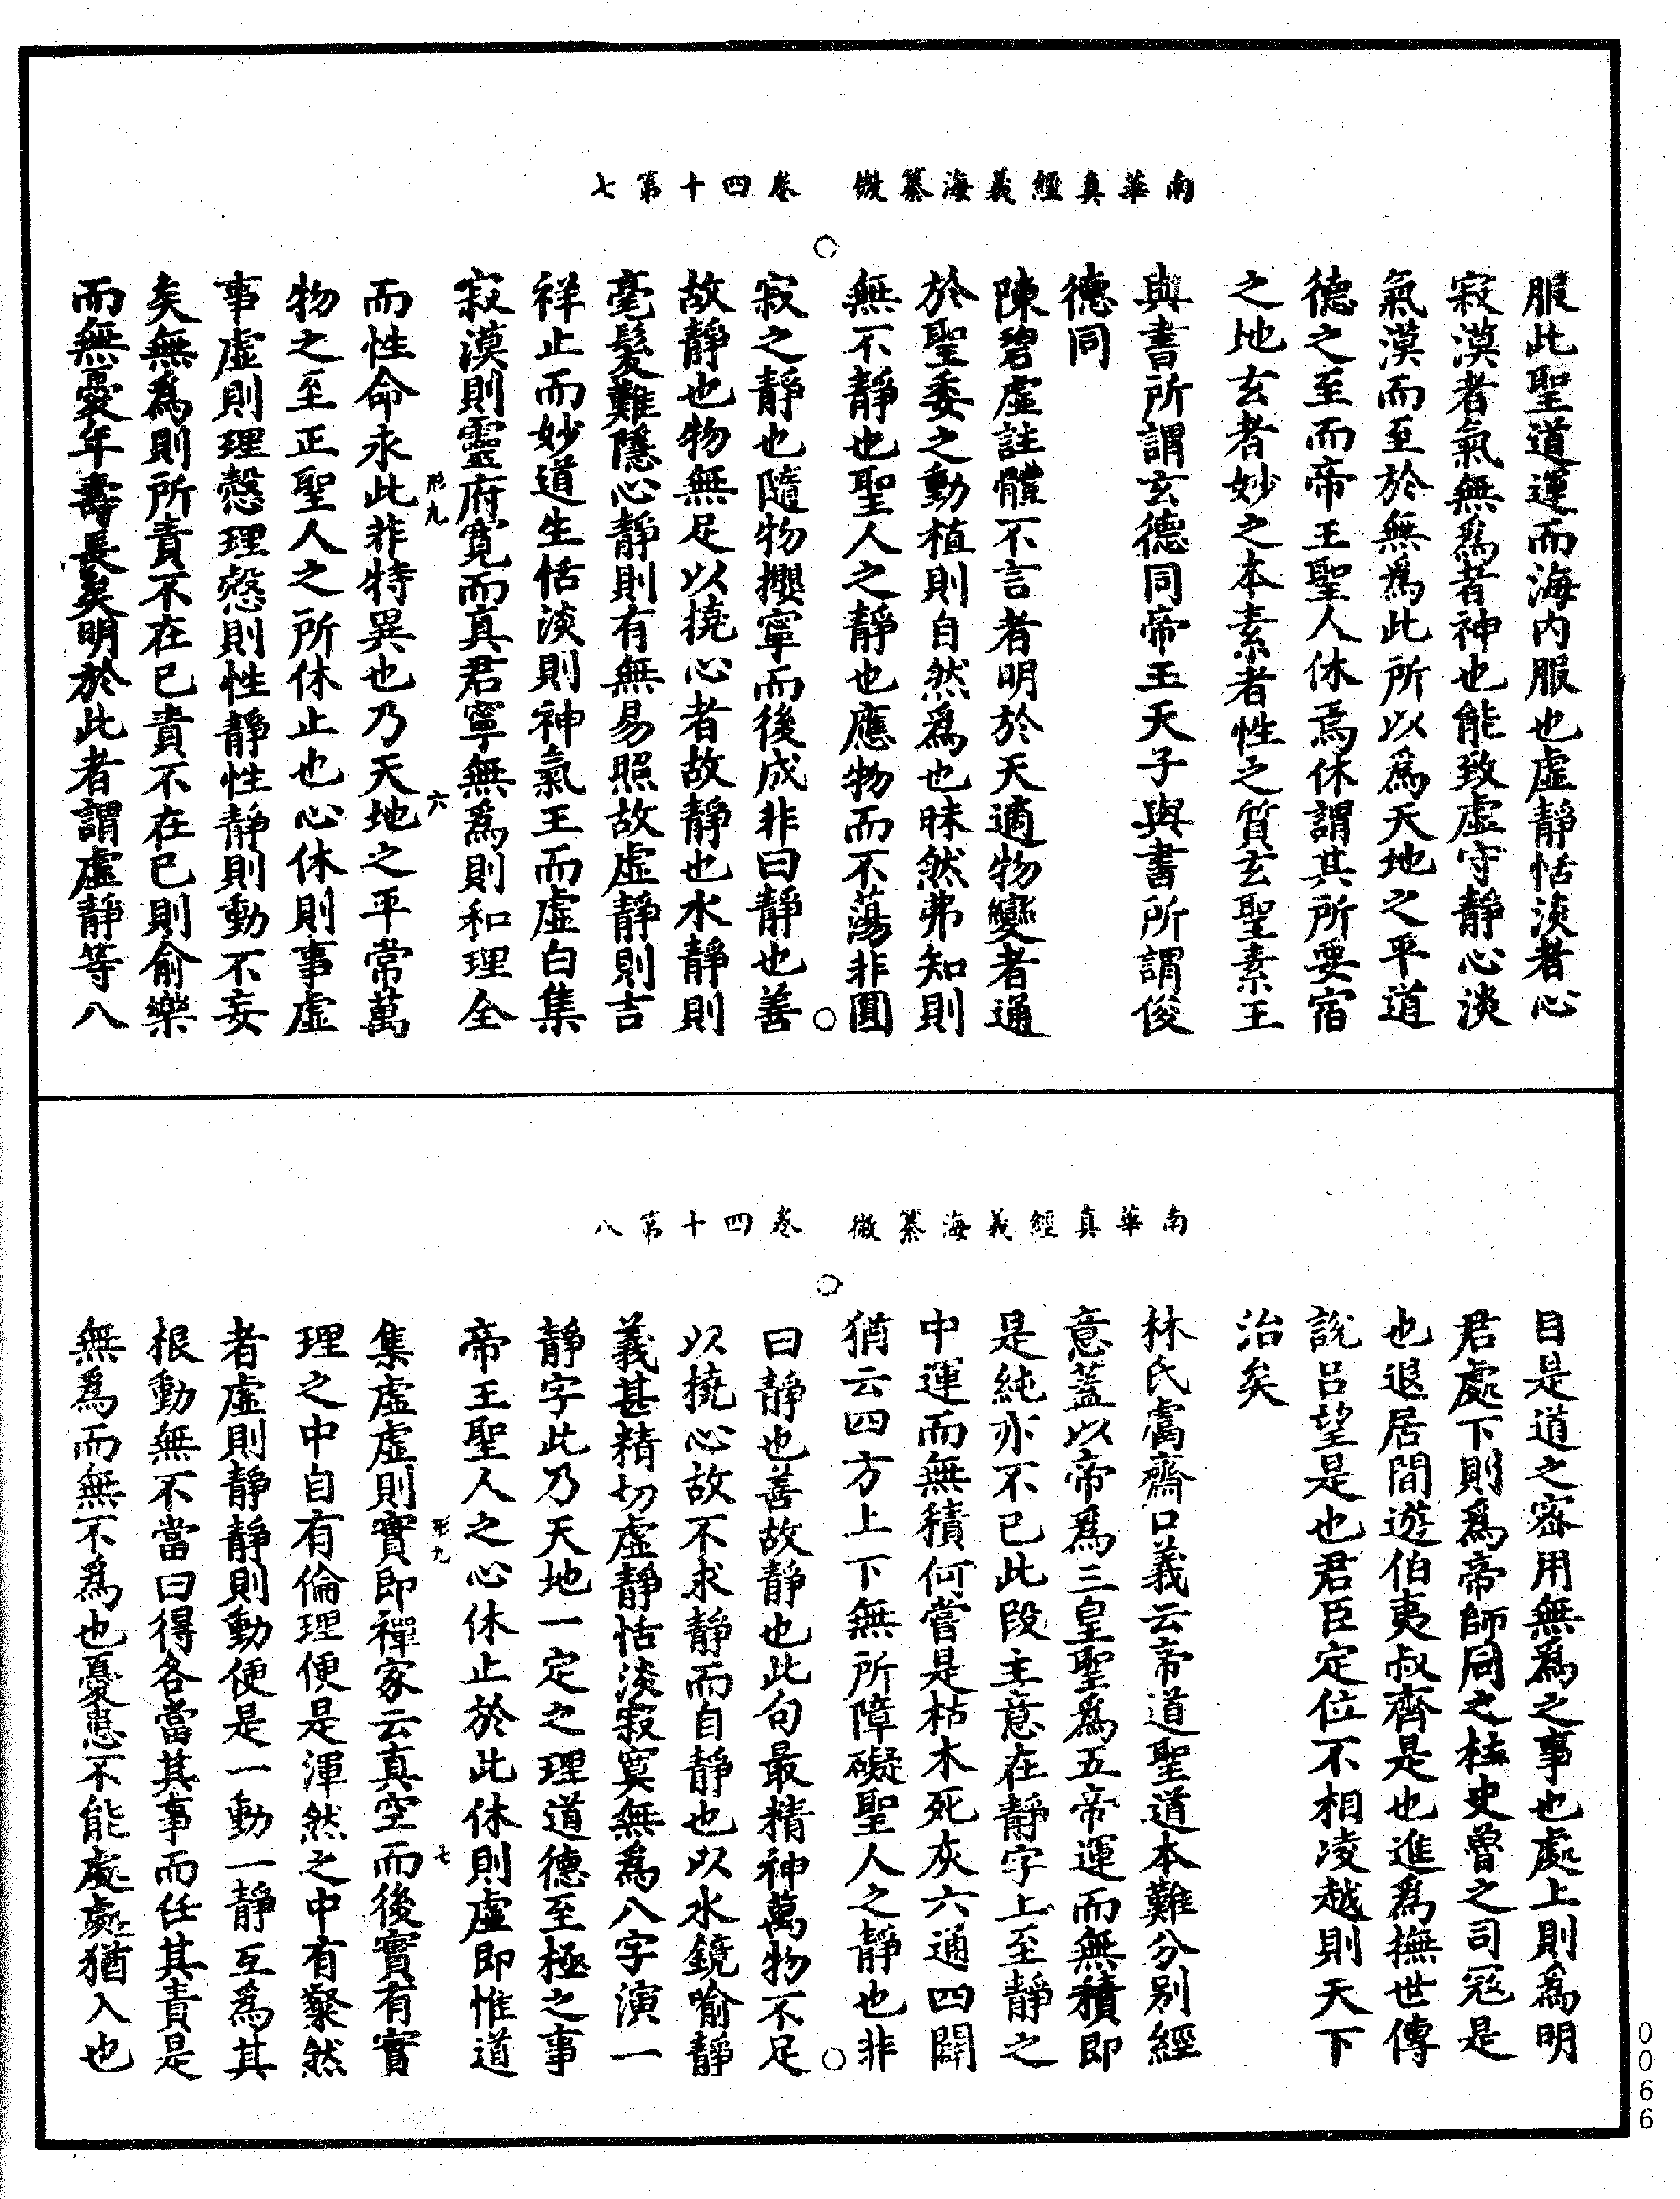 南華真經義海纂微　卷四十第七
服此聖道運而海内服也虛靜恬淡者心
寂漠者氣無爲者神也能致虛守靜心淡
氣漠而至於無爲此所以爲天地之平道
德之至而帝王聖人休焉休謂其所要宿
之地玄者妙之本素者性之質玄聖素王
與書所謂玄德同帝王天子與書所謂俊
德同
陳碧虛註體不言者明於天適物變者通
於聖委之動植則自然爲也昧然弗知則
無不靜也聖人之靜也應物而不蕩非圓
寂之靜也隨物攖寧而後成非曰靜也善
故靜也物無足以撓心者故靜也水靜則
毫髮難隱心靜則有無易照故虛靜則吉
祥止而妙道生恬淡則神氣王而虛白集
寂漠則靈府寬而真君寧無爲則和理全
形九　六
而性命永此非特異也乃天地之平常萬
物之至正聖人之所休止也心休則事虛
事虛則理慤理慤則性靜性靜則動不妄
矣無爲則所責不在已責不在已則俞樂
而無憂年壽長矣明於此者謂虛靜等八
南華真經義海纂微　卷四十第八
目是道之密用無爲之事也處上則爲明
君處下則爲帝師同之柱史魯之司冦是
也退居間遊伯夷叔齊是也進爲撫世傳
說呂望是也君臣定位不相凌越則天下
治矣
林氏鬳齋口義云帝道聖道本難分别經
意蓋以帝爲三皇聖爲五帝運而無積即
是純亦不已此段主意在靜字上至靜之
中運而無積何嘗是枯木死灰六通四闢
猶云四方上下無所障礙聖人之靜也非
曰靜也善故靜也此句最精神萬物不足
以撓心故不求靜而自靜也以水鏡喻靜
義甚精切虛靜恬淡寂寞無爲八字演一
靜字此乃天地一定之理道德至極之事
帝王聖人之心休止於此休則虛即惟道
形九　七
集虛虛則實即禪家云真空而後實有實
理之中自有倫理便是渾然之中有粲然
者虛則靜靜則動便是一動一靜互爲其
根動無不當曰得各當其事而任其責是
無爲而無不爲也憂患不能處處猶入也
0066